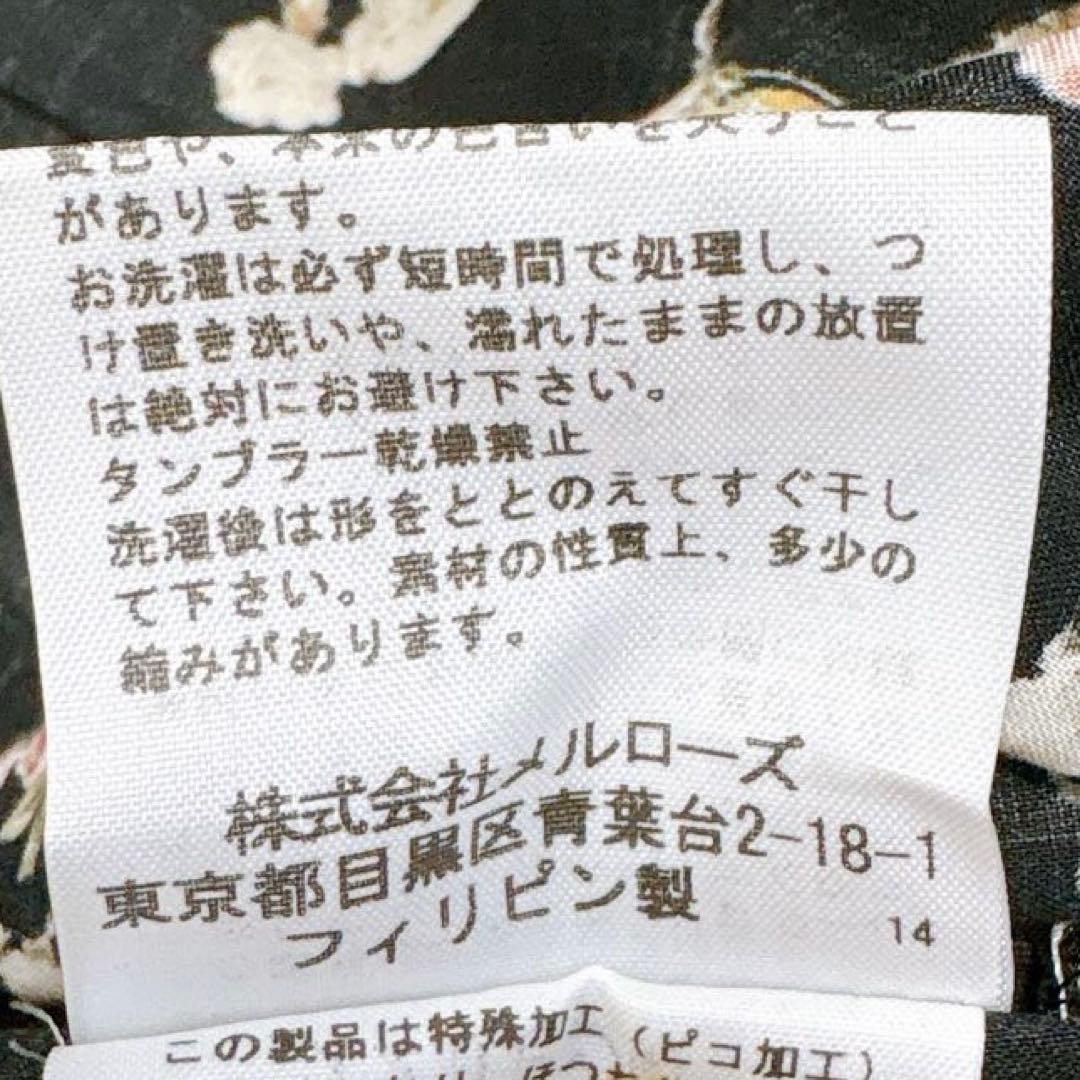 変色や、本来の色合いを失うこと
があります。
お洗濯は必ず短時間で処理し、つ
け置き洗いや、濡れたままの放置
は絶対にお避け下さい。
タンブラー乾燥禁止
洗濯後は形をととのえてすぐ干し
て下さい。素材の性質上、多少の
縮みがあります。
株式会社メルローズ
東京都目黒区青葉台2-18-1
フィリピン製
14
この製品は特殊加工(ピコ加工)